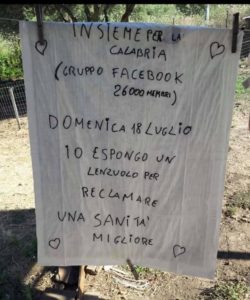 INSIEME PER LA
CALABRIA
(GRUPPO FACEBOOK
26000 MEMBRI)
DOMENICA 18 LUGLIO
IO ESPONGO UN
LENZUOLO PER
RECLAMARE
UNA SANITA'
MIGLIORE